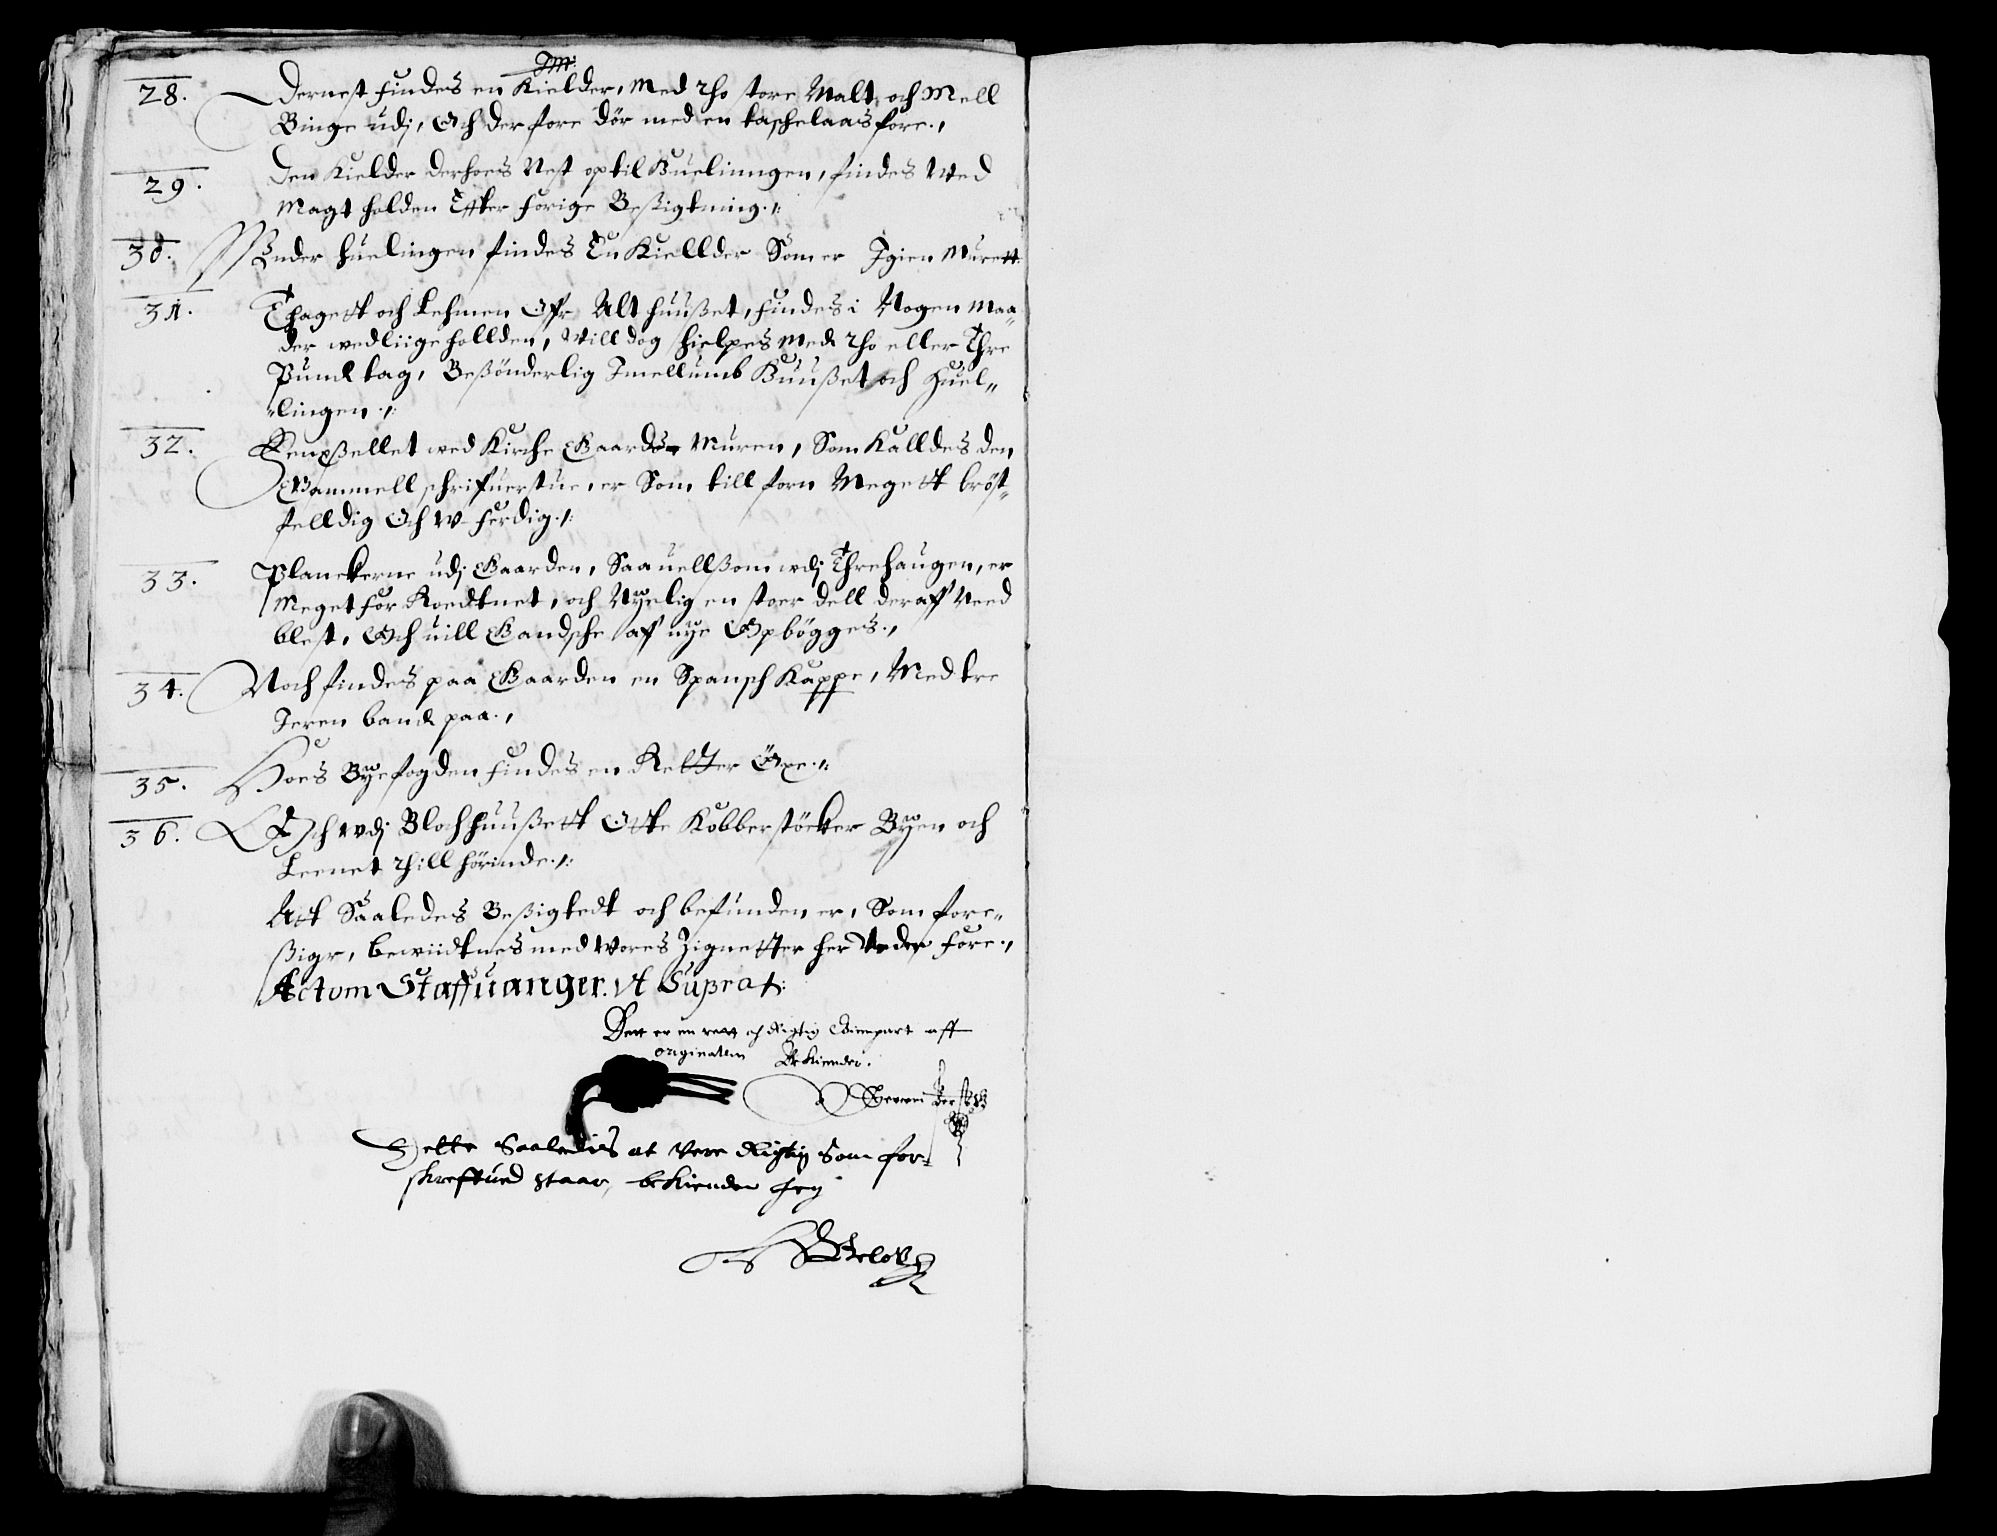 28. Dernest findes en Kielder, Med tho store Malt och Mell
Binge udj, Och der fore dör med en taschelaas fore.,
29. Den Kielder derhoes Nest optil Huelinngen, findes Wed
Magt holden Efter förige Beßigtning./:
30. Under Huelingen findes En Kiellder Som er Igien Murett
31. Thagett och Lehmen Ofr Alt huußet, findes i Nogen Maa„
der wedliige hollden, Will dog hielpes Med tho eller Thre
Pund tag, Beßönderlig Imellumb Huußet och Huel„
„lingen./:
32. Fengßellet wed Kirche Gaards Muren, Som Kalldes den
Gammell schrifuerstue, er Som till forn Megett bröst„
felldig Och w-ferdig./:
33. Planckerne udj Gaarden, Saauellßom udj Threhaugen, er
Meget for Roedtnet, och Nyelig en stoer dell deraff Need
blest, Och uill Gandsche aff nye Opbögges.,
34. Noch findes paa Gaarden en Spansch Kappe, Med tre
Jeren band paa.,
35. Hoes Byefogden findes en Retter Öxe./:
36. Och wdj Blochhuußett Otte Kobberstöcker Byen och
Leenet thill hörinde./:
Att Saaledes Beßigtedt och befunden er, Som fore„
ßigr, bewiidtnes med Wores Zignetter her Under fore.,
Actom Staffuanger. Vt Supra/:
Dett er en rett och Rigtig Gienpart aff
originalen Bekiender.
Dette Saaledis at Vere Rigtig Som for„
skreffued staar, bekiender Jeg